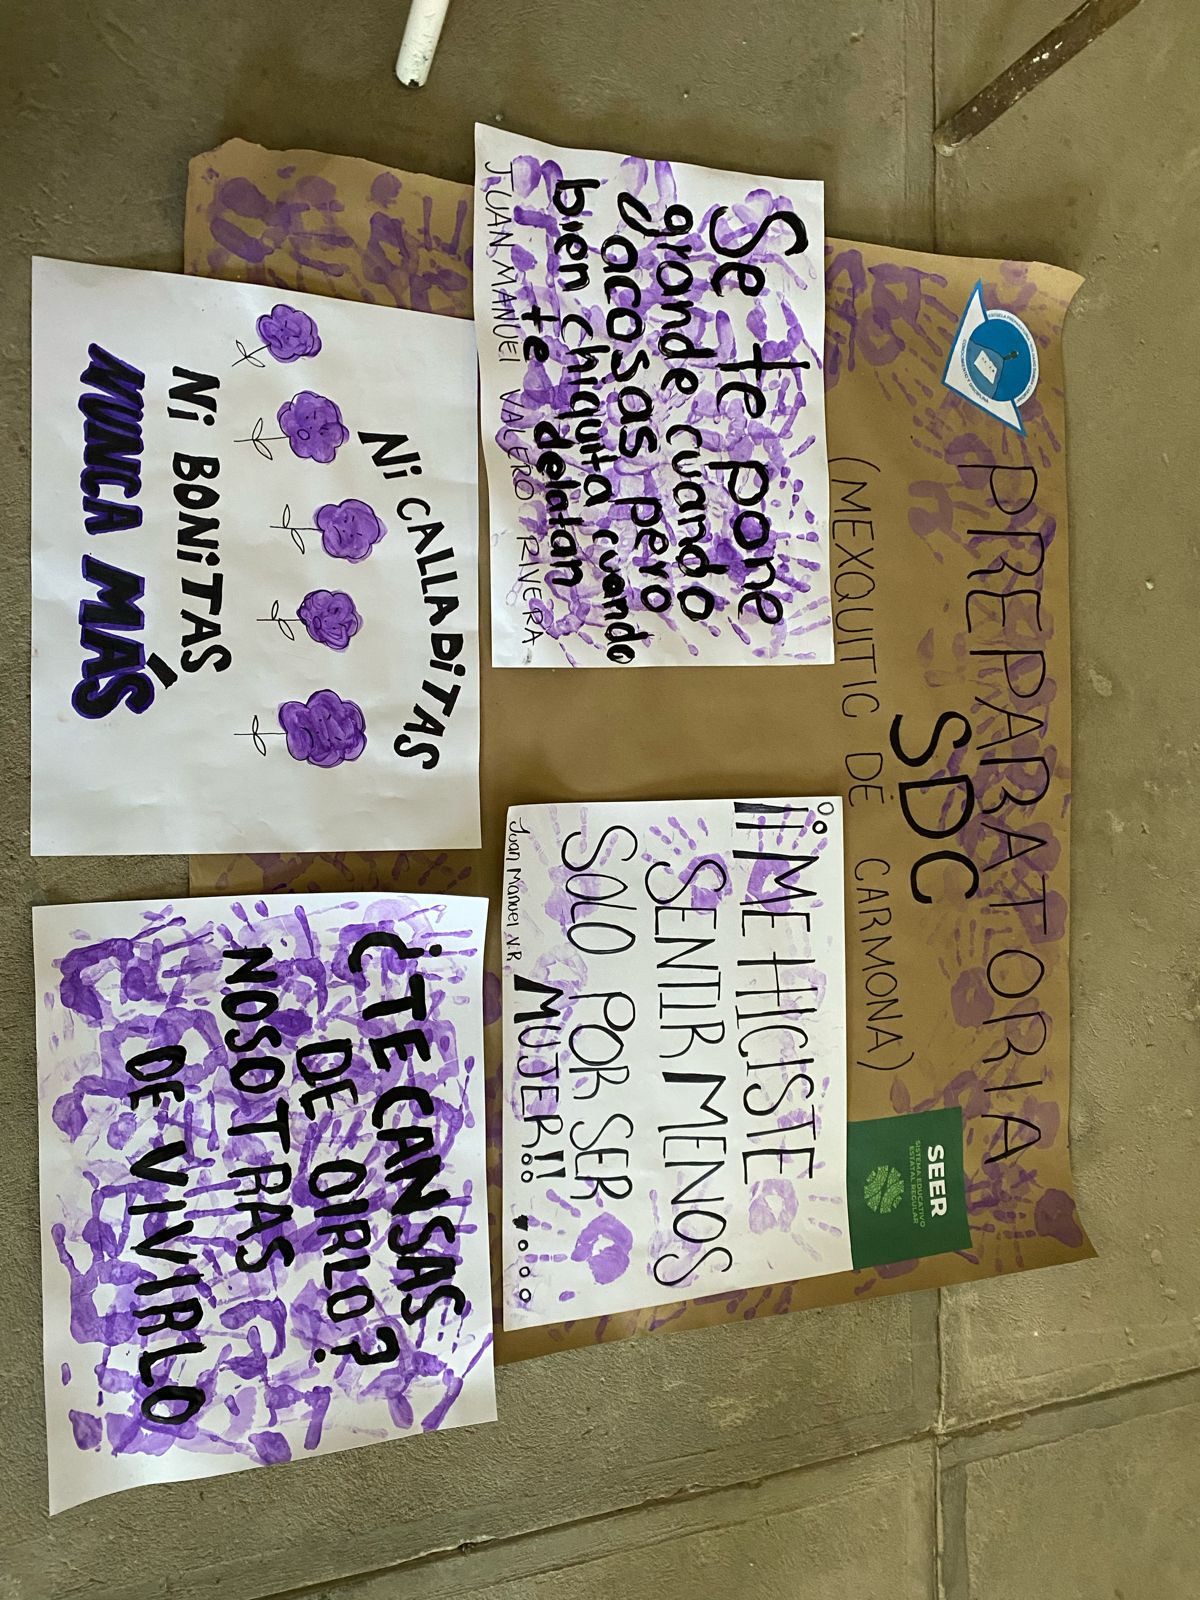 PREPARATORIA
SDC
(MEXQUITIC DE CARMONA)
SEER
SISTEMA EDUCATIVO
ESTATAL REGULAR
Se te pone
grande cuando
acosas pero
bien chiquita cuando
te delatan
JUAN MANUEL VALERO RIVERA
¡¡ME HICISTE
SENTIR MENOS
SOLO POR SER
MUJER!!
Juan Manuel V.R.
Ni CALLADiTAS
Ni BONiTAS
NUNCA MÁS
¿TE CANSAS
DE OIRLO?
NOSOTRAS
DE VIVIRLO